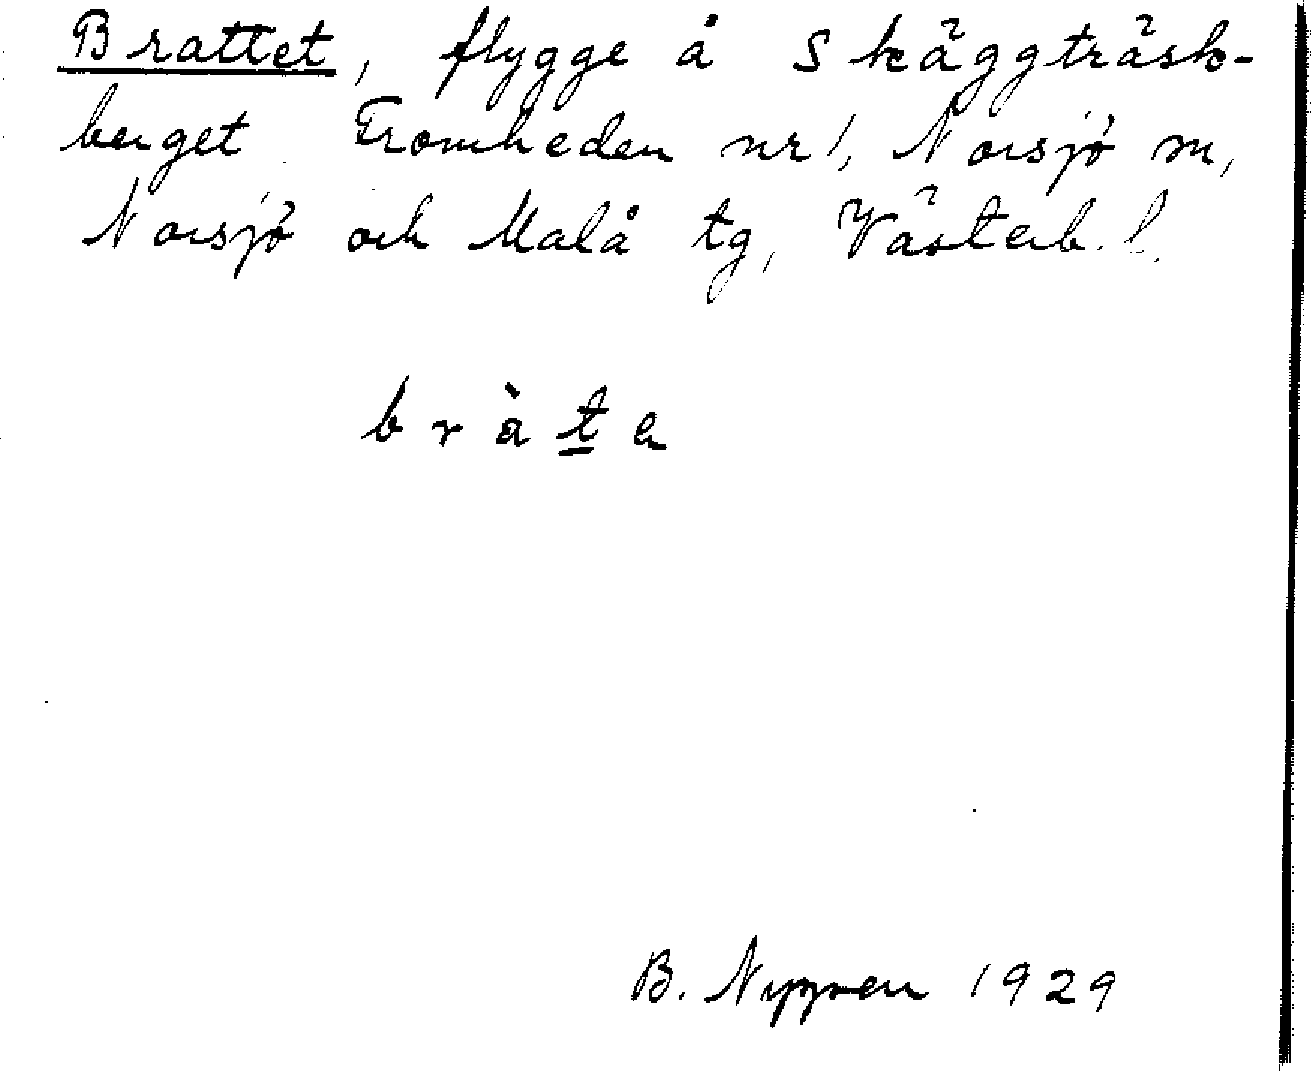 Brattet, flygge å Skäggträsk-
berget Tromheden nr 1, Norsjö sn,
Norsjö och Malå tg, Västerb. l.
bràte
B. 1929